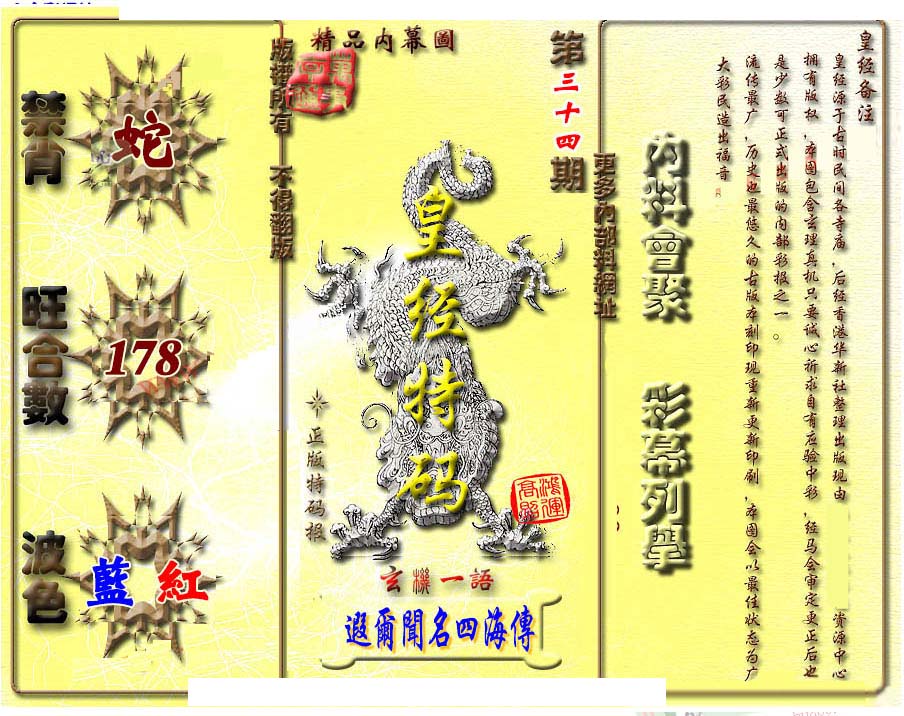 精品内幕圖
第三十四期
版權所有 不得翻版
更多内部料網址
禁肖
蛇
旺合數
178
波色
藍 紅
皇经特码
正版特码报
鴻運高照
玄機一語
遐爾聞名四海傳
内料會聚
彩幕列擧
皇经备注
皇经源于古时民间各寺庙，后经香港华新社整理出版现由 资源中心
拥有版权，本图包含玄理真机只要诚心祈求自有应验中彩，经马会审定更正后也
是少数可正式出版的内部彩报之一。
流传最广，历史也最悠久的古版本刻印现重新更新印刷，本图会以最佳状态为广
大彩民造出福音